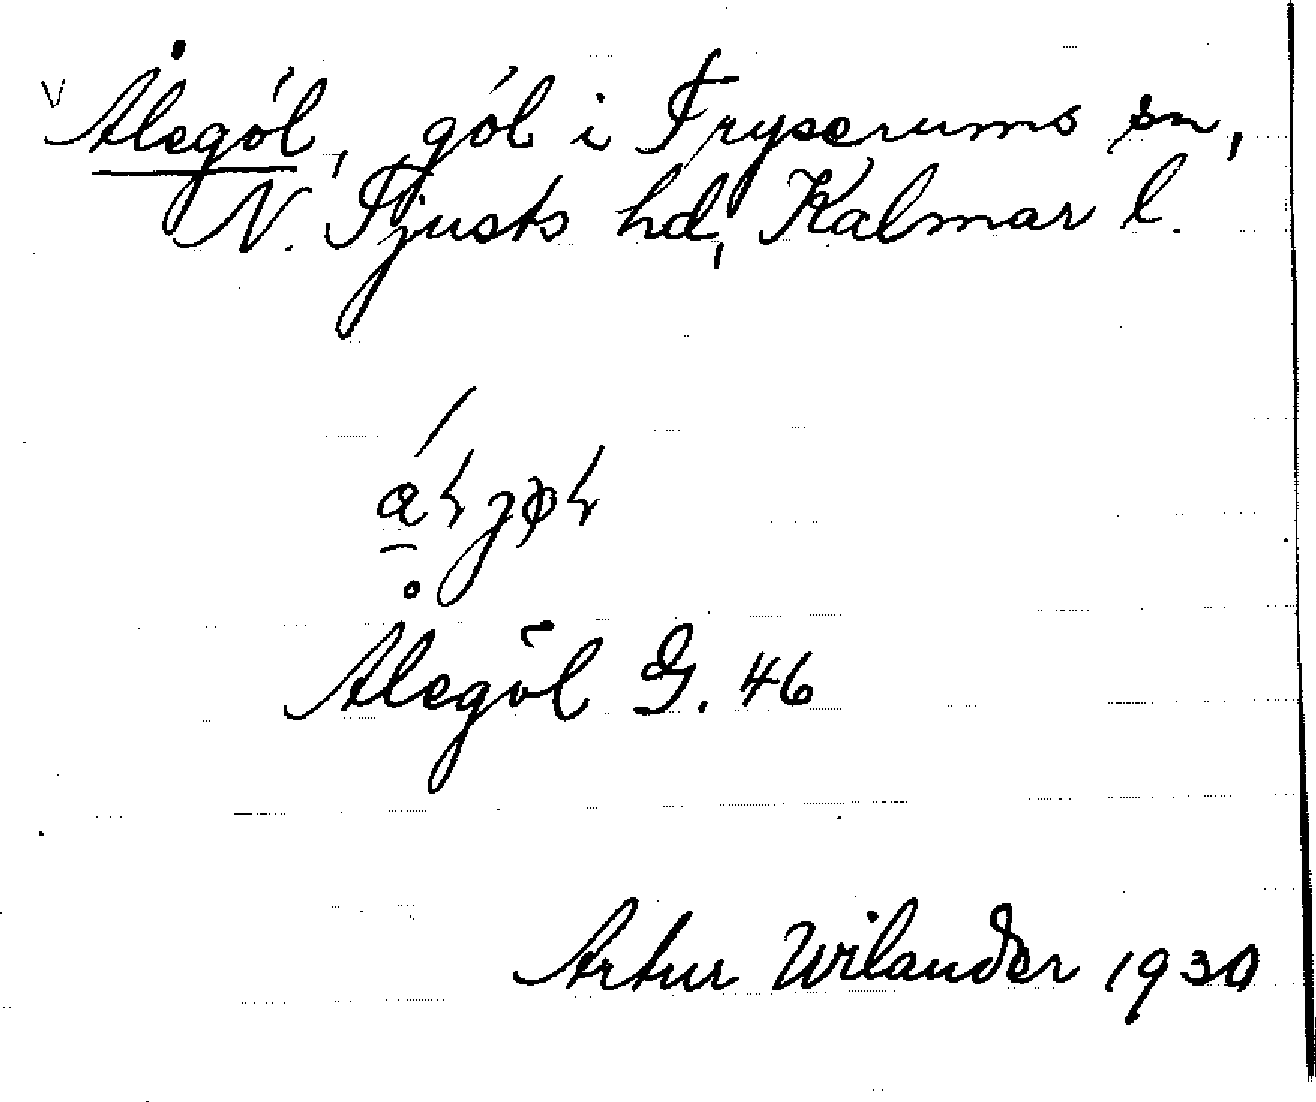 v Ålsgöl, göl i Tryserums sn,
N. Tjusts hd, Kalmar l.
Ålsgöl G. 46
Artur Wilander 1930